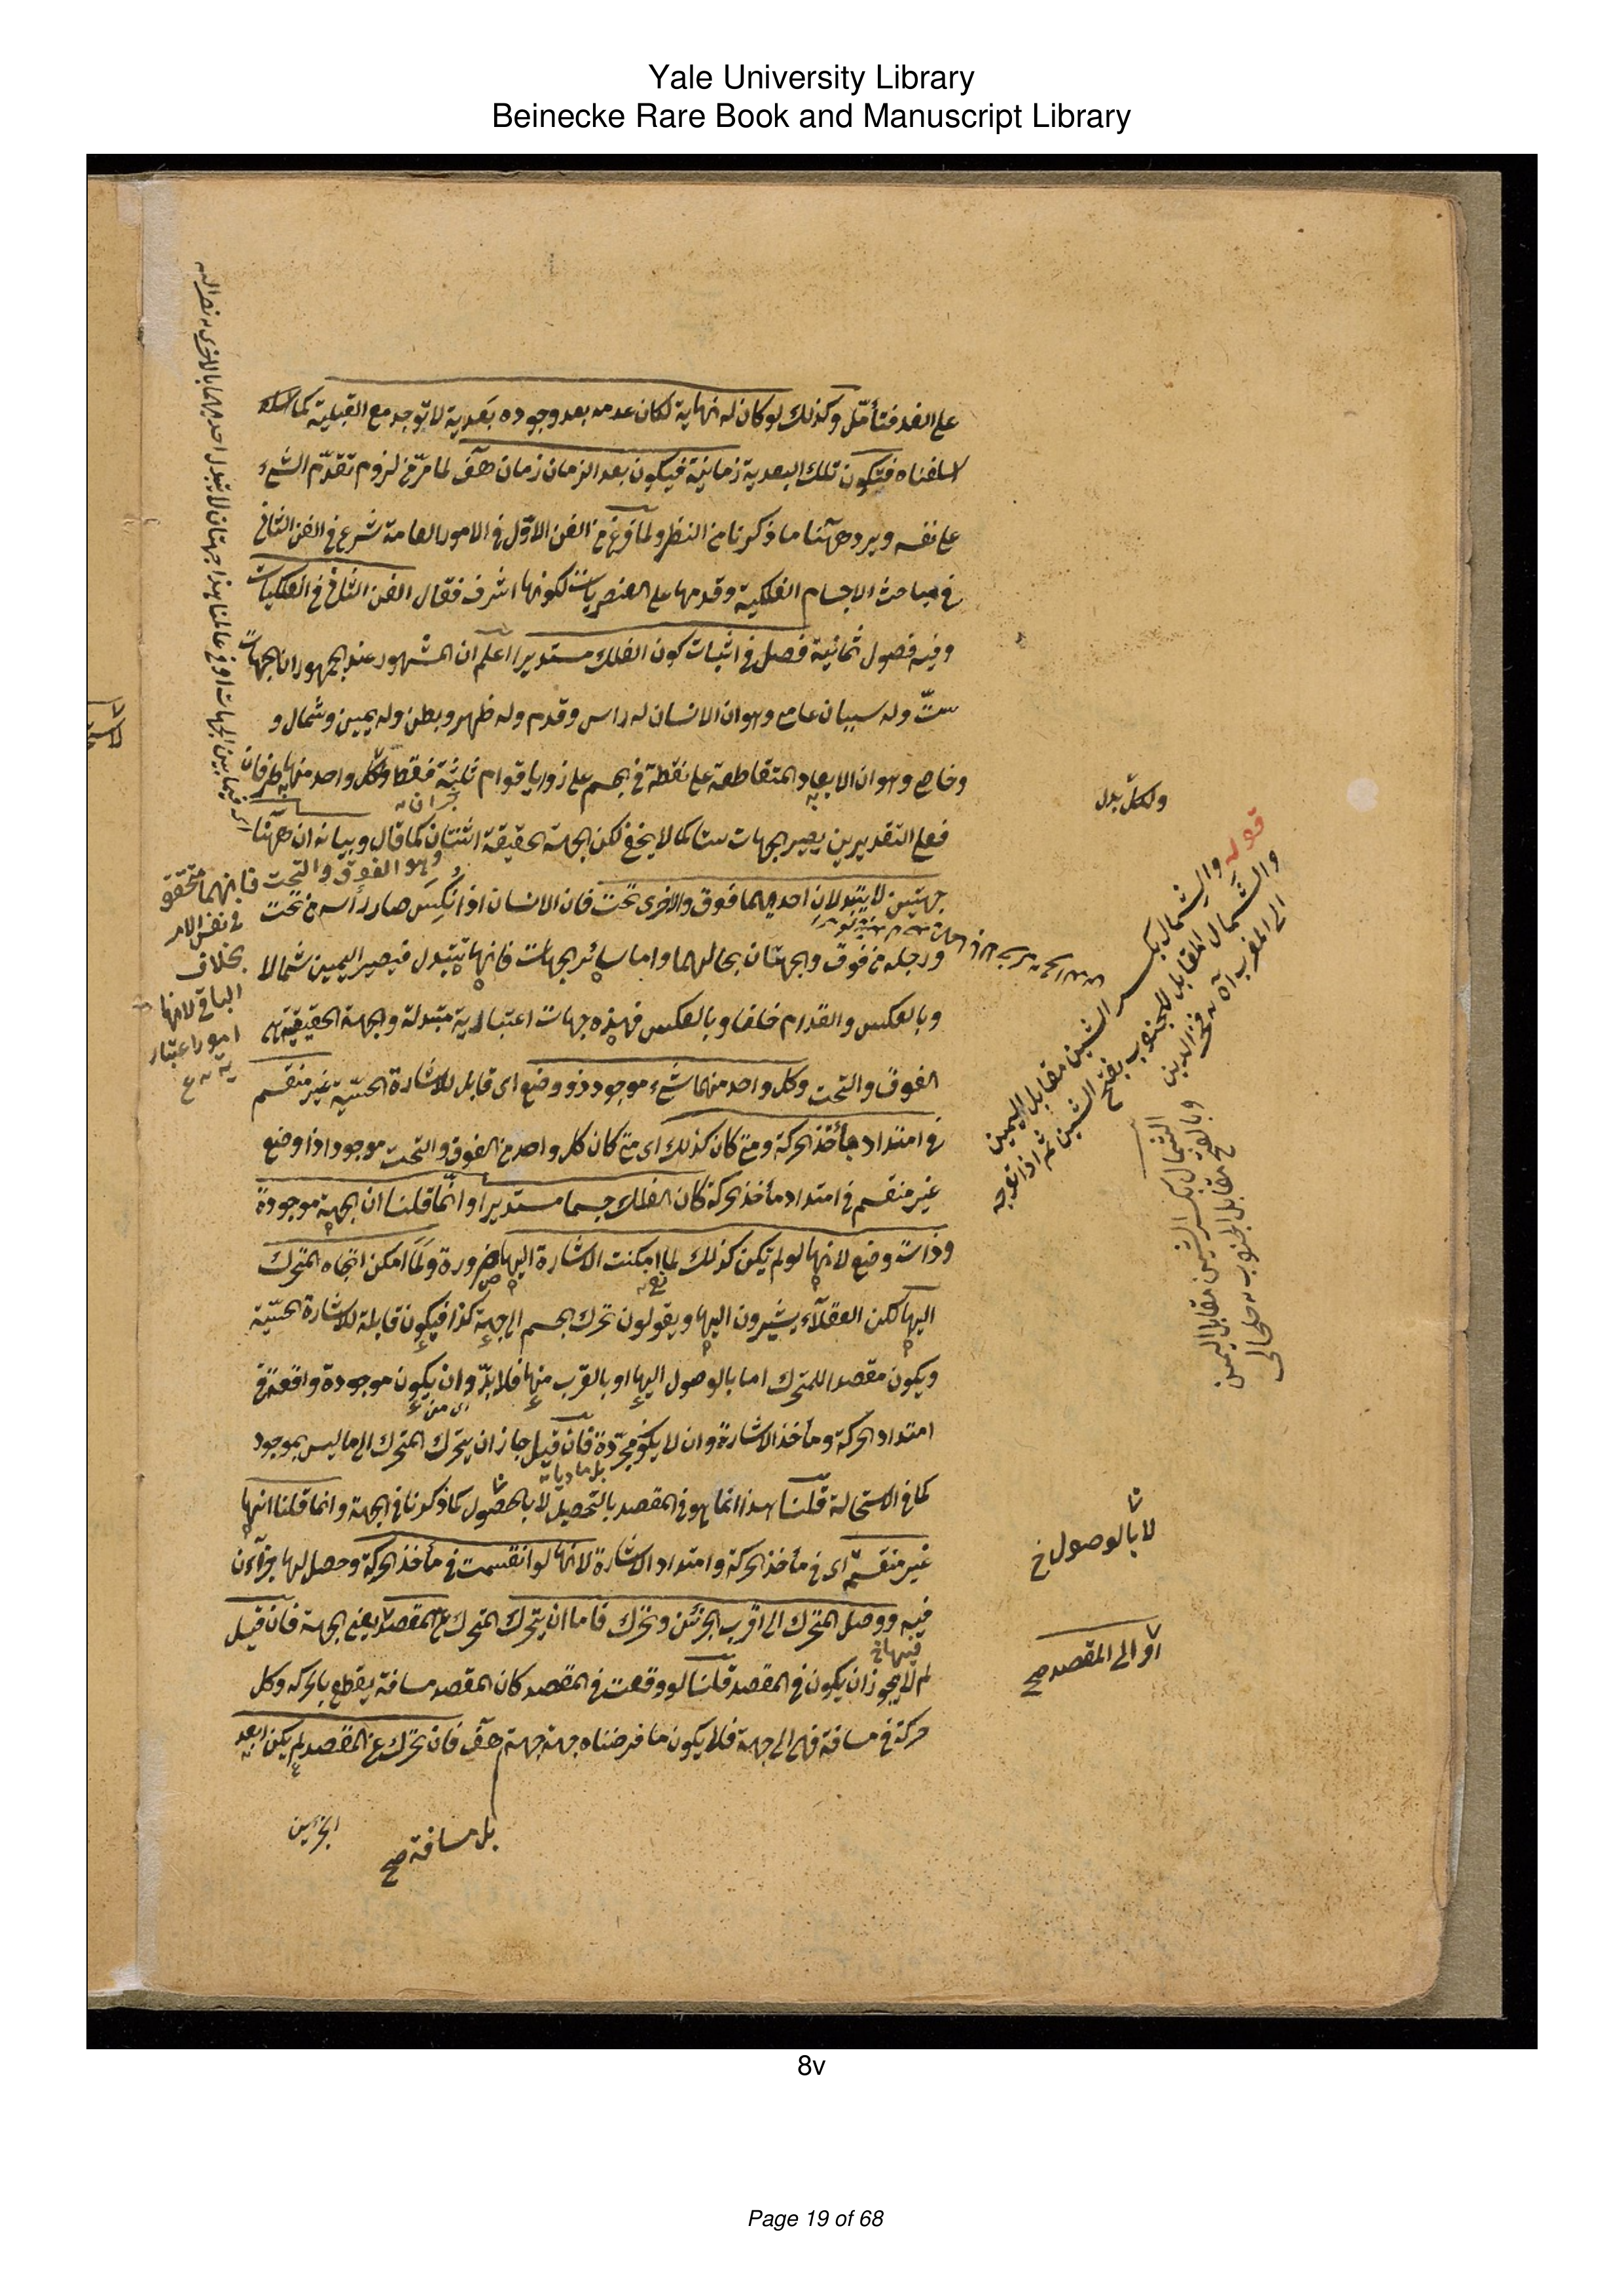 Yale University Library
Beinecke Rare Book and Manuscript Library
على الغد فتأمّل وكذلك لو كان له نهاية لكان عدمه بعد وجوده بَعدية لا توجد مع القبلية كما
اسلفناه فتكون تلك البعدية زمانيّة فيكون بعد الزمان زمان هف لما مرّ من لزوم تقدّم الشئ
على نفسه ويرد ههنا ما ذكرنا من النظر ولما فرغ من الفن الاوّل في الامور العامة شرع في الفن الثاني
في مباحث الاجسام الفلكية وقدمها على العنصريات لكونها اشرف فقال الفن الثاني في الفلكيات
وفيه فصول ثمانية فصل في اثبات كون الفلك مستديرا اعلم ان المشهور عند الجمهور ان الجهات
ستّ وله سببان عامي وهو ان الانسان له راس وقدم وله ظهر وبطن وله يمين وشمال و
وخاصي وهو ان الابعاد المتقاطعة على نقطة في الجسم على زوايا قوائم ثلثة فقط ولكل واحد منها طرفان
ولكلّ بدل
فعلى التقديرين يصير الجهات ستا كما لا يخفى لكن الجهة الحقيقة اثنتان كما قال وبيانه ان ههنا
وهو الفوق والتحت فانهما متحقق
في نفس الامر
بخلاف
الباقي لانها
امور اعتبار
ية
جهتين لا يتبدلان احديهما فوق والاخرى تحت فان الانسان اذا نُكِسَ صار رأسه من تحت
ورجله من فوق والجهتان بحالهما واما سائر الجهات فانها تتبدل فيصير اليمين شمالا
وبالعكس والقدام خلفا وبالعكس فهذه جهات اعتبارية متبدلة والجهة الحقيقية هي
الفوق والتحت وكل واحد منهما شئ موجود ذو وضع اى قابل للاشارة الحسّية غير منقسم
في امتداد مأخذ الحركة ومتى كان كذلك اى متى كان كل واحد من الفوق والتحت موجودا ذا وضع
غير منقسم في امتداد مأخذ الحركة كان الفلك جسما مستديرا وانما قلنا ان الجهة موجودة
وذات وضع لانها لو لم تكن كذلك لما امكنت الاشارة اليها ضرورة ولَمَا امكن اتجاه المتحرك
اليها لكن العقلاء يشيرون اليها ويقولون تحرك الجسم الى جهة كذا فيكون قابلة للاشارة الحسّية
ويكون مقصدا للمتحرك اما بالوصول اليها او بالقرب منها فلا بدّ وان يكون موجودة واقعة في
امتداد الحركة ومأخذ الاشارة وان لا يكون مجرّدة فان قيل جاز ان يتحرك المتحرك الى ما ليس بموجود
بل ماديات
كما في الاستحالة قلنا هذا انما هو في المقصد بالتحصيل لا بالحصول كما ذكرنا في الجهة وانما قلنا انها
لا بالوصول خ
غير منقسمة اى في مأخذ الحركة وامتداد الاشارة لانها لو انقسمت في مأخذ الحركة وحصل لها جزآن
فيه ووصل المتحرك الى اقرب الجزئين وتحرك فاما ان يتحرك المتحرك عن المقصد يعنى الجهة فان قيل
او الى المقصد صح
فيها خ
لم لا يجوز ان يكون في المقصد قلنا لو وقعت في المقصد كان المقصد مسافة يقطع بالحركة وكل
حركة في مسافة فهي الى جهة فلا يكون ما فرضناه جهة جهة هف فان تحرك عن المقصد لم يكن ابعد
بل مسافة صح
الجزئين
قوله والشمال بكسر الشين مقابل اليمين
والشَّمال المقابل للجنوب بفتح الشين ثم اذا توجه
الى المغرب آه فخر الدين
الشمال بكسر الشين مقابل اليمين
وبالفتح مقابل الجنوب
8v
Page 19 of 68